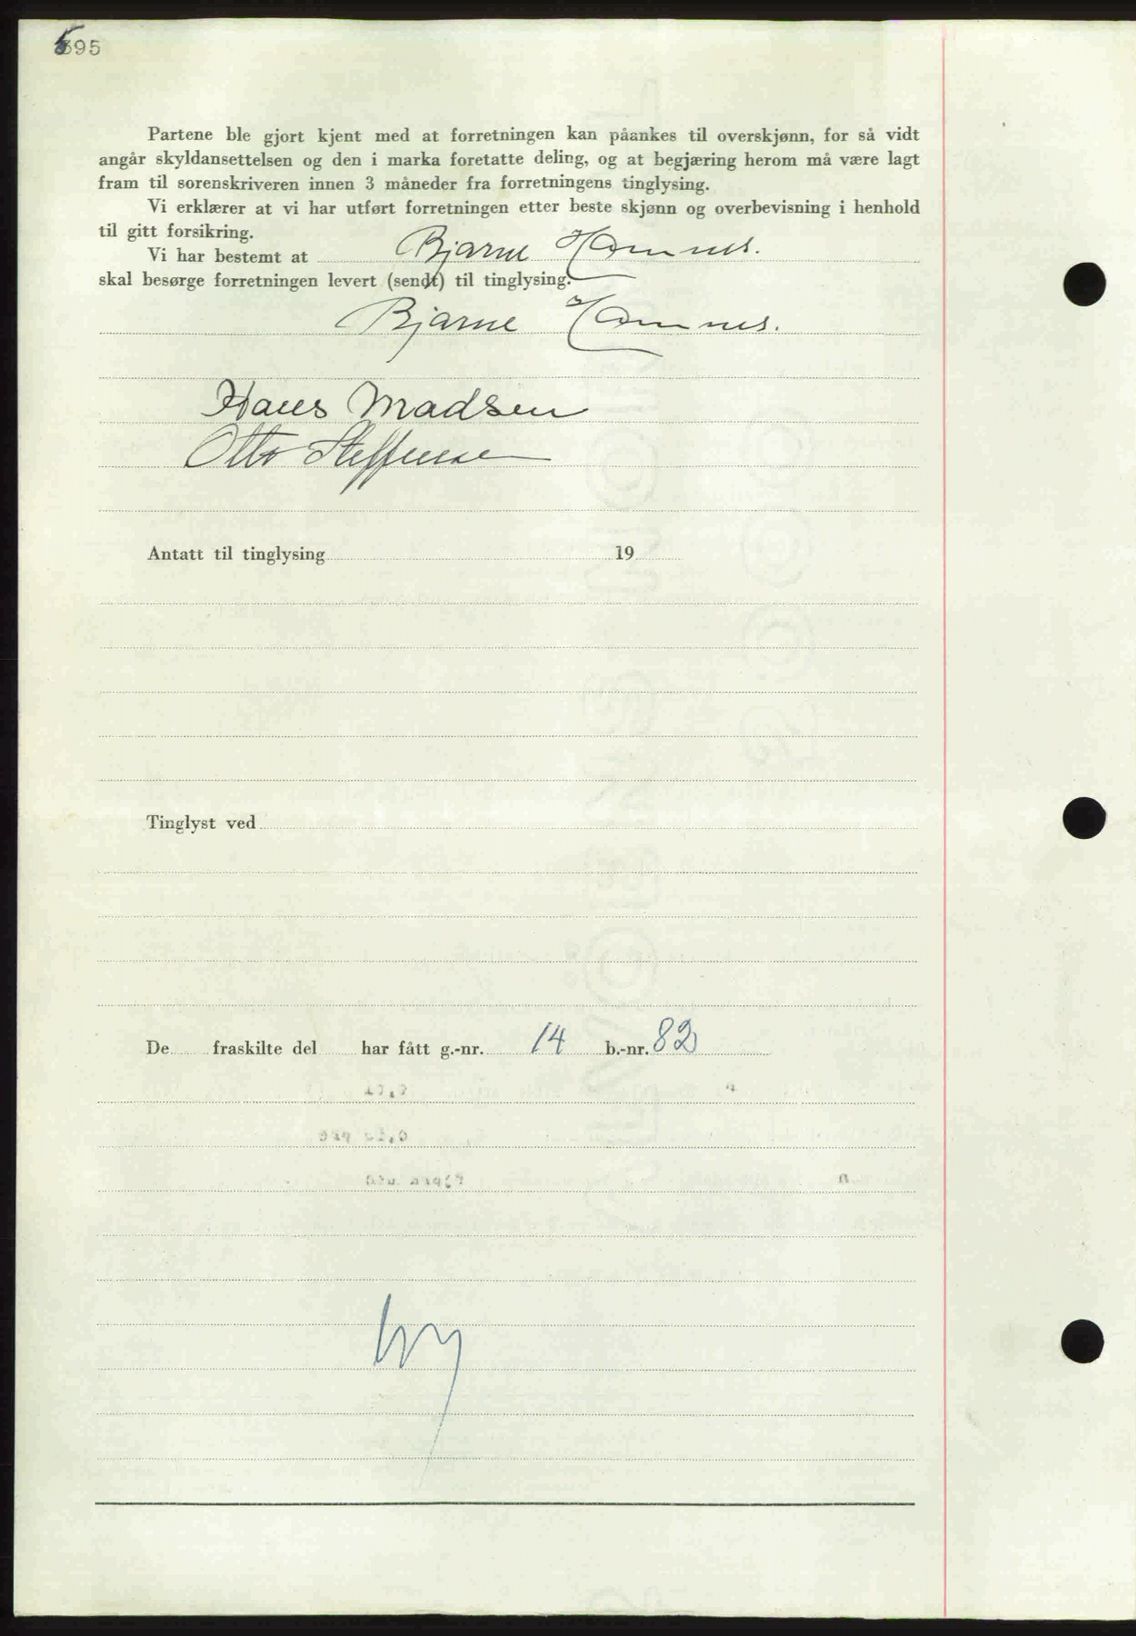 595
Partene ble gjort kjent med at forretningen kan påankes til overskjønn, for så vidt
angår skyldansettelsen og den i marka foretatte deling, og at begjæring herom må være lagt
fram til sorenskriveren innen 3 måneder fra forretningens tinglysing.
Vi erklærer at vi har utført forretningen etter beste skjønn og overbevisning i henhold
til gitt forsikring.
Vi har bestemt at Bjarne Hamnes.
skal besørge forretningen levert (sendt) til tinglysing.
Bjarne Hamnes.
Hans Madsen
Otto Steffensen
Antatt til tinglysing 19
Tinglyst ved
De fraskilte del har fått g.-nr. 14 b.-nr. 82